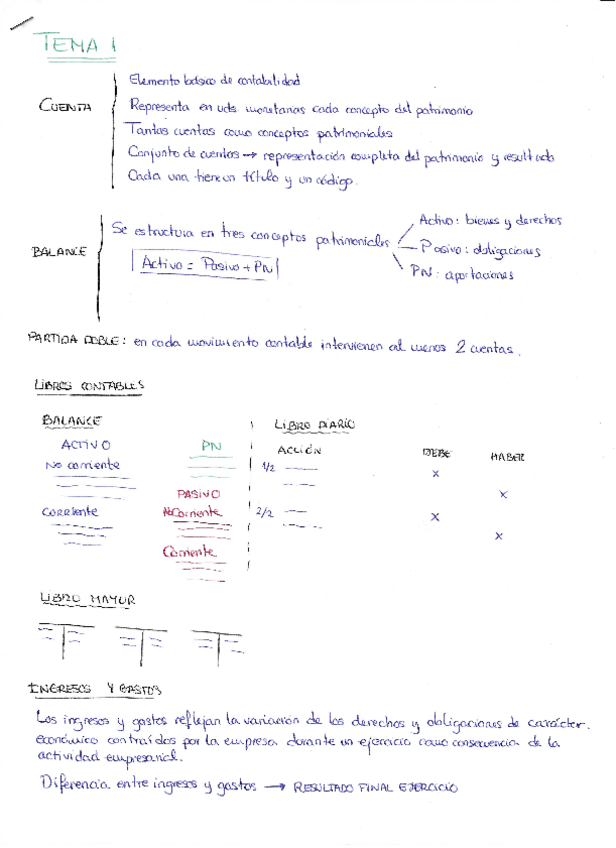 TEMA 1
CUENTA
Elemento básico de contabilidad
Representa en uds. monetarias cada concepto del patrimonio
Tantas cuentas como conceptos patrimoniales
Conjunto de cuentas → representación completa del patrimonio y resultado
Cada una tiene un título y un código.
BALANCE
Se estructura en tres conceptos patrimoniales
Activo: bienes y derechos
Pasivo: obligaciones
PN: aportaciones
Activo = Pasivo + PN
PARTIDA DOBLE: en cada movimiento contable intervienen al menos 2 cuentas.
LIBROS CONTABLES
BALANCE
ACTIVO PN
No corriente
PASIVO
Corriente No Corriente
Corriente
LIBRO DIARIO
ACCIÓN DEBE HABER
1/2 x
x
2/2 x
x
LIBRO MAYOR
INGRESOS Y GASTOS
Los ingresos y gastos reflejan la variación de los derechos y obligaciones de carácter.
económico contraídos por la empresa durante un ejercicio como consecuencia de la
actividad empresarial.
Diferencia entre ingresos y gastos → RESULTADO FINAL EJERCICIO